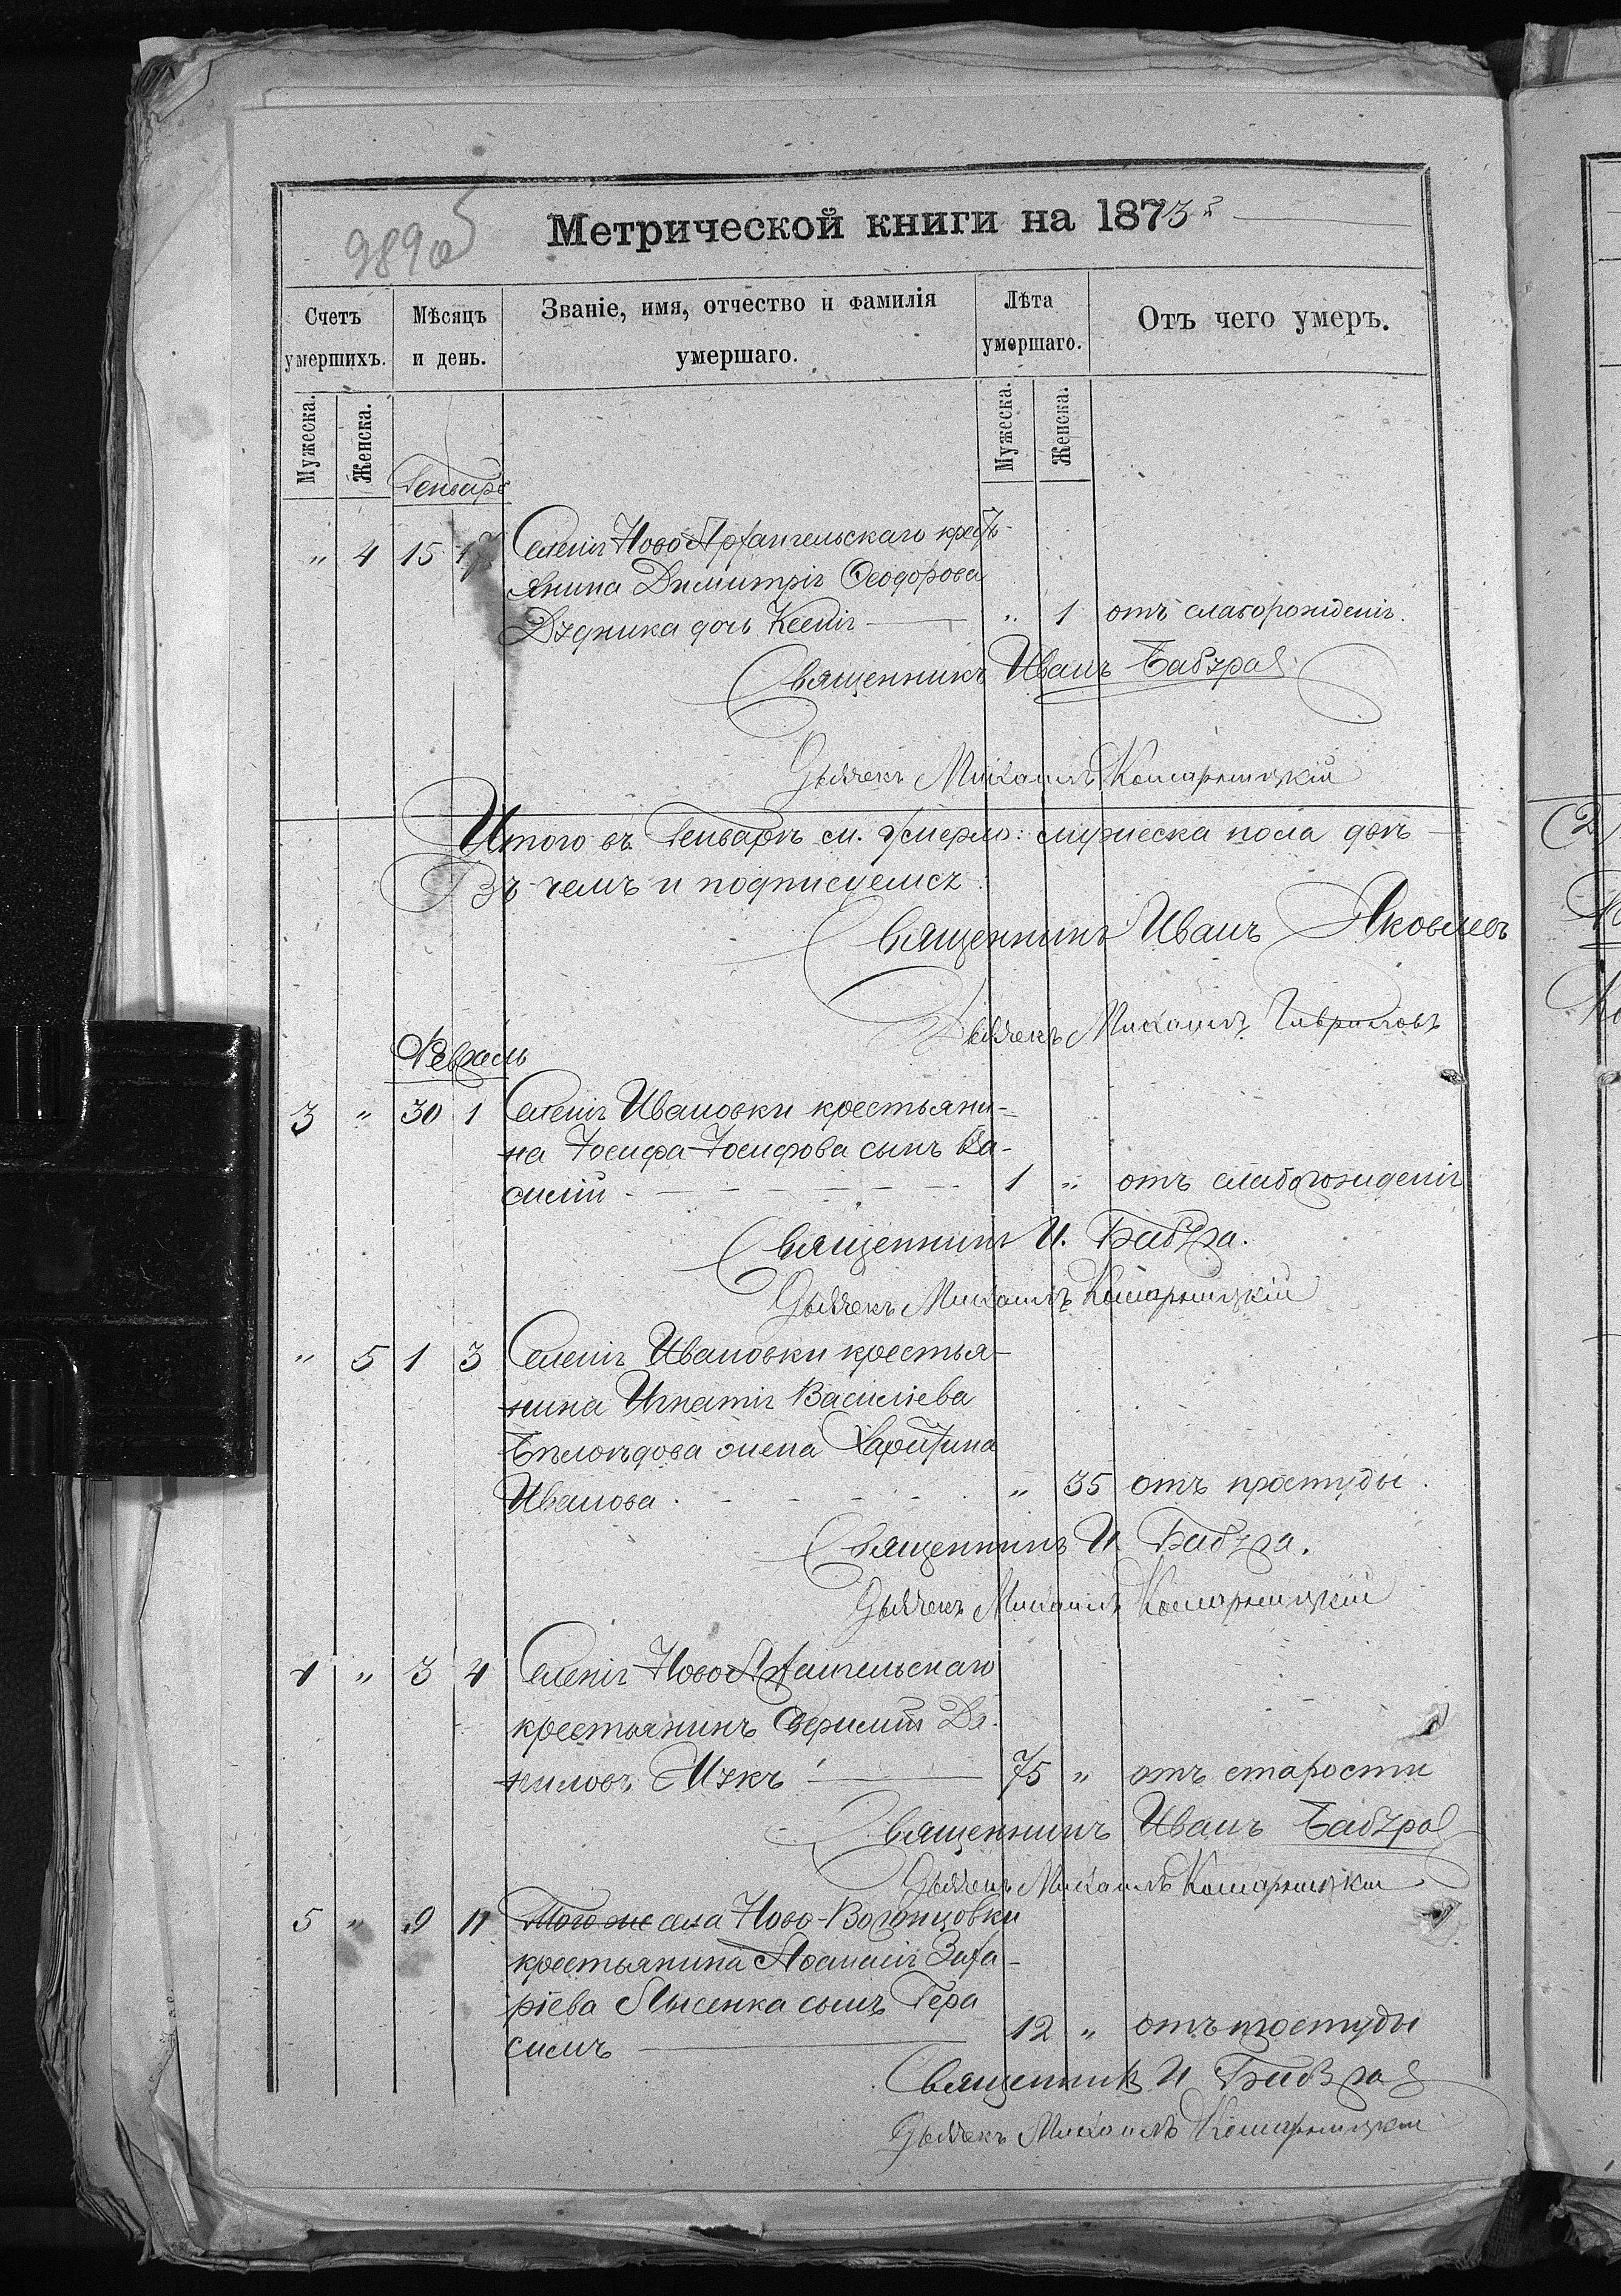 989об
Метрической книги на 1873й
Счетъ умершихъ.
Мѣсяцъ и день.
Званіе, имя, отчество и фамилія умершаго.
Лѣта умершаго.
Отъ чего умеръ.
Мужеска. Женска.
Мужеска. Женска.
Генварь
" 4 15 17 Селенія Ново Архангельскаго крест-
янина Димитрія Ѳеодорова
Дудника дочь Ксенія " 1 отъ слаборожденія.
Священникъ Иванъ Бабура
Дьячекъ Михаилъ Комарницкій
Итого въ Генварѣ м. Умерло: мужеска пола двѣ
Въ чемъ и подписуемся
Священникъ Иванъ Яковлевъ
Дьячекъ Михаилъ Гавриловъ
Февраль
3 " 30 1 Селенія Ивановки крестьяни-
на Іосифа Іосифова сынъ Ва-
силій 1 " отъ слаборожденія
Священникъ И. Бабура.
Дьячекъ Михаилъ Комарницкій
" 5 1 3 Селенія Ивановки крестья-
нина Игнатія Василіева
Бѣлоѣдова жена Харитина
Иванова " 35 отъ простуды.
Священникъ И Бабура.
Дьячекъ Михаилъ Комарницкій
4 " 3 4 Селенія Ново Архангельскаго
крестьянинъ Да-
ниловъ Мукъ 75 " отъ старости
Священникъ Иванъ Бабура
Дьячекъ Михаилъ Комарницкій
5 " 9 11 Того же села Ново-Воронцовки
крестьянина Аѳанасія Заха-
ріева Лысенка сынъ Гера
симъ 12 " отъ простуды
Священникъ И Бабура
Дьячекъ Михаилъ Комарницкій